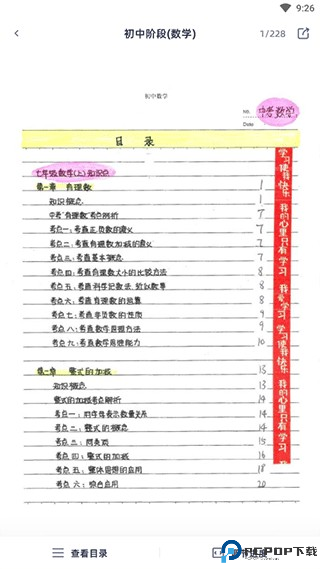 9:26
初中阶段(数学)
1/228
初中数学
No.
中考数学
Date
目 录
七年级数学(上)知识点
第一章 有理数 1
知识概念 1
中考"有理数"考点剖析 7
考点一:考查正负数的意义 7
考点二:考查有理数加减的意义 7
考点三:考查基本概念 7
考点四:考查有理数大小的比较方法 8
考点五:考查科学记数法、近似数等 8
考点六:考查有理数的运算 8
考点七:考查非负数的性质 9
考点八:考查数学思想方法 9
考点九:考查数学思维能力 10
第二章 整式的加减 13
知识概念 13
整式的加减考点解析 14
考点一:用字母表示数量关系 14
考点二:整式的概念 14
考点三:同类项 15
考点四:整式的加减 16
考点五:整体思想的应用 18
考点六:综合应用 20
学习使我快乐 我的心里只有学习 我爱学习 学习使我快乐 我的心里只有学习
查看目录
PCPOP下载